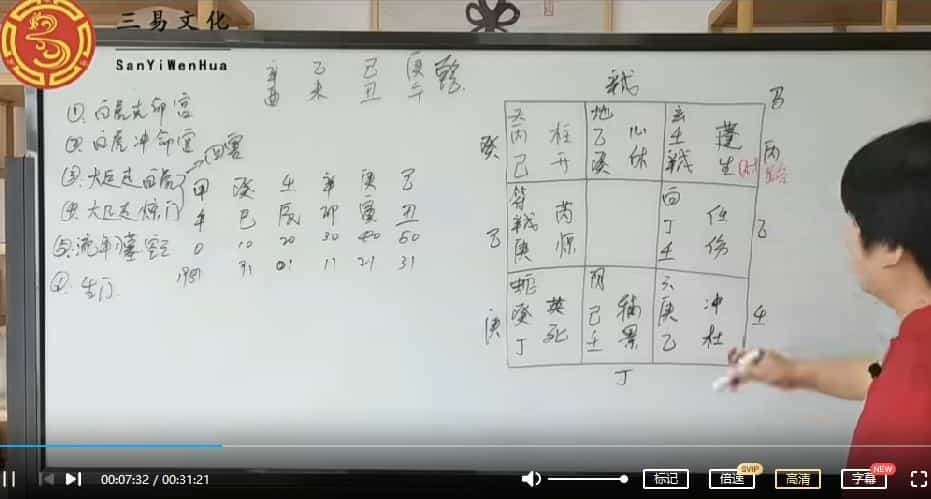 三易文化
SanYiWenHua
辛 乙 己 庚 乾
酉 未 丑 午
①.白虎克命宫
②.白虎冲命宫
③.大运走白虎
④.大运走惊门
⑤.流年
⑥.生门
甲 癸 壬 辛 庚 己
午 巳 辰 卯 寅 丑
0 10 20 30 40 50
1981 91 01 11 21 31
马
癸
丙 柱
己 开
地
乙 心
癸 休
玄
壬 蓬
生
丙
乙
芮
庚 惊
白
丁 任
壬 伤
乙
庚
蛇
癸 英
丁 死
阴
己 辅
壬 景
六
庚 冲
乙 杜
壬
丁
00:07:32 / 00:31:21
标记
倍速
SVIP
高清
字幕
NEW